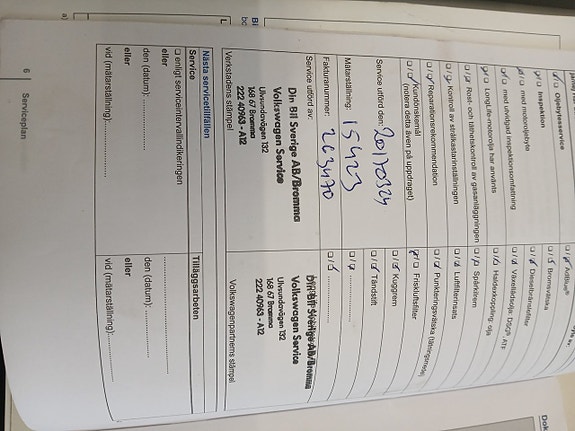 Oljebytesservice
Inspektion
med motoroljebyte
med utvidgad inspektionsomfattning
LongLife-motorolja har använts
Rost- och täthetskontroll av gasanläggningen
Kontroll av strålkastarinställningen
Reparationsrekommendation
Kundönskemål
(notera detta även på uppdraget)
Service utförd den: 20170324
Mätarställning: 15423
Fakturanummer: 263470
Service utförd av:
Din Bil Sverige AB/Bromma
Volkswagen Service
Ulvsundavägen 132
168 67 Bromma
222 40963 - A12
Verkstadens stämpel
AdBlue®
Bromsvätska
Dieselbränslefilter
Växellådsolja: DSG® · ATF
Haldexkoppling: olja
Spårkörem
Luftfilterinsats
Punkteringsvätska
Friskluftsfilter
Kuggrem
Tändstift
Din Bil Sverige AB/Bromma
Volkswagen Service
Ulvsundavägen 132
168 67 Bromma
222 40963 - A12
Volkswagenpartnerns stämpel
Nästa servicetillfällen
Service
enligt serviceintervallindikeringen
eller
den (datum):
eller
vid (mätarställning):
Tilläggsarbeten
den (datum):
eller
vid (mätarställning):
6 Serviceplan